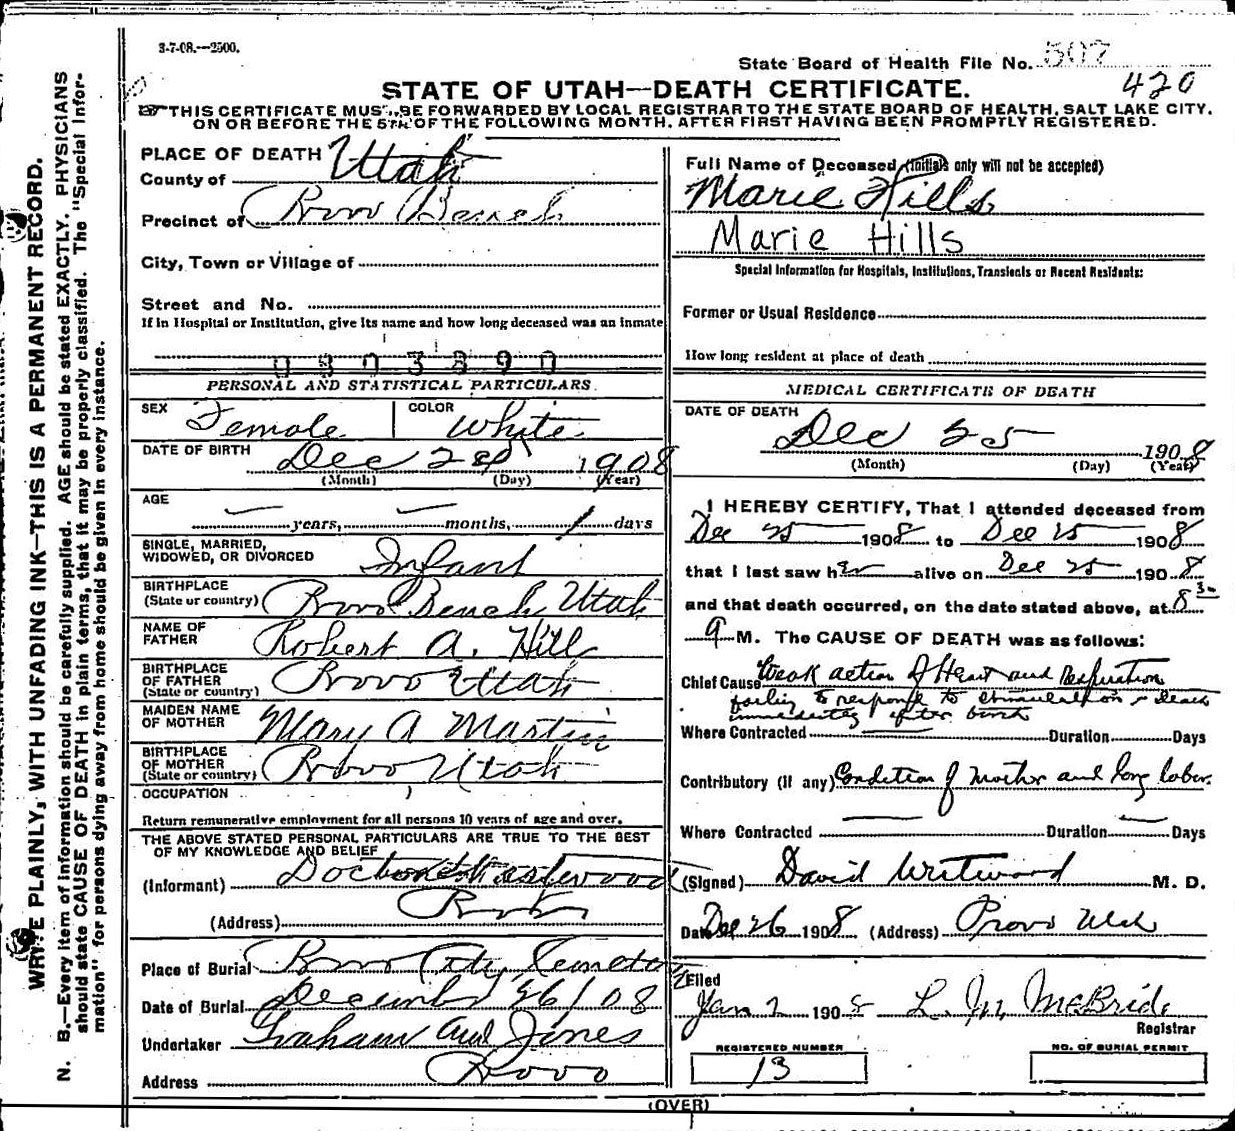 3-7-08.—2500.
State Board of Health File No. 507
420
STATE OF UTAH—DEATH CERTIFICATE.
THIS CERTIFICATE MUST BE FORWARDED BY LOCAL REGISTRAR TO THE STATE BOARD OF HEALTH, SALT LAKE CITY,
ON OR BEFORE THE 5TH OF THE FOLLOWING MONTH, AFTER FIRST HAVING BEEN PROMPTLY REGISTERED.
WRITE PLAINLY, WITH UNFADING INK—THIS IS A PERMANENT RECORD.
N. B.—Every item of information should be carefully supplied. AGE should be stated EXACTLY. PHYSICIANS
should state CAUSE OF DEATH in plain terms, that it may be properly classified. The "Special Infor-
mation" for persons dying away from home should be given in every instance.
PLACE OF DEATH
County of Utah
Precinct of Provo Bench
City, Town or Village of
Street and No.
If in Hospital or Institution, give its name and how long deceased was an inmate
0303890
PERSONAL AND STATISTICAL PARTICULARS.
SEX Female COLOR White
DATE OF BIRTH Dec 1908
(Month) (Day) (Year)
AGE
— years, — months, 1 days
SINGLE, MARRIED,
WIDOWED, OR DIVORCED Infant
BIRTHPLACE
(State or country) Provo Bench, Utah
NAME OF
FATHER Robert A. Hill
BIRTHPLACE
OF FATHER
(State or country) Provo Utah
MAIDEN NAME
OF MOTHER Mary A Martin
BIRTHPLACE
OF MOTHER
(State or country) Provo Utah
OCCUPATION
Return remunerative employment for all persons 10 years of age and over.
THE ABOVE STATED PERSONAL PARTICULARS ARE TRUE TO THE BEST
OF MY KNOWLEDGE AND BELIEF
(Informant) Doctor Westwood
(Address) Provo
Place of Burial Provo City Cemetery
Date of Burial December 26/08
Undertaker Graham and Jones
Address Provo
Full Name of Deceased (Initials only will not be accepted)
Marie Hills
Marie Hills
Special Information for Hospitals, Institutions, Transients or Recent Residents:
Former or Usual Residence
How long resident at place of death
MEDICAL CERTIFICATE OF DEATH
DATE OF DEATH
Dec 25 1908
(Month) (Day) (Year)
I HEREBY CERTIFY, That I attended deceased from
Dec 25 1908 to Dec 25 1908
that I last saw her alive on Dec 25 1908
and that death occurred, on the date stated above, at 8 30
M. The CAUSE OF DEATH was as follows:
Chief Cause Weak action of Heart and Respiration
failing to response to stimulation & death
immediately after birth
Where Contracted Duration Days
Contributory (if any) Condition of mother and long labor.
Where Contracted Duration Days
(Signed) David Westwood M. D.
Date Dec 26 1908 (Address) Provo Utah
Filed
Jan 2 190 L. M. McBride
Registrar
REGISTERED NUMBER
13
NO. OF BURIAL PERMIT
(OVER)